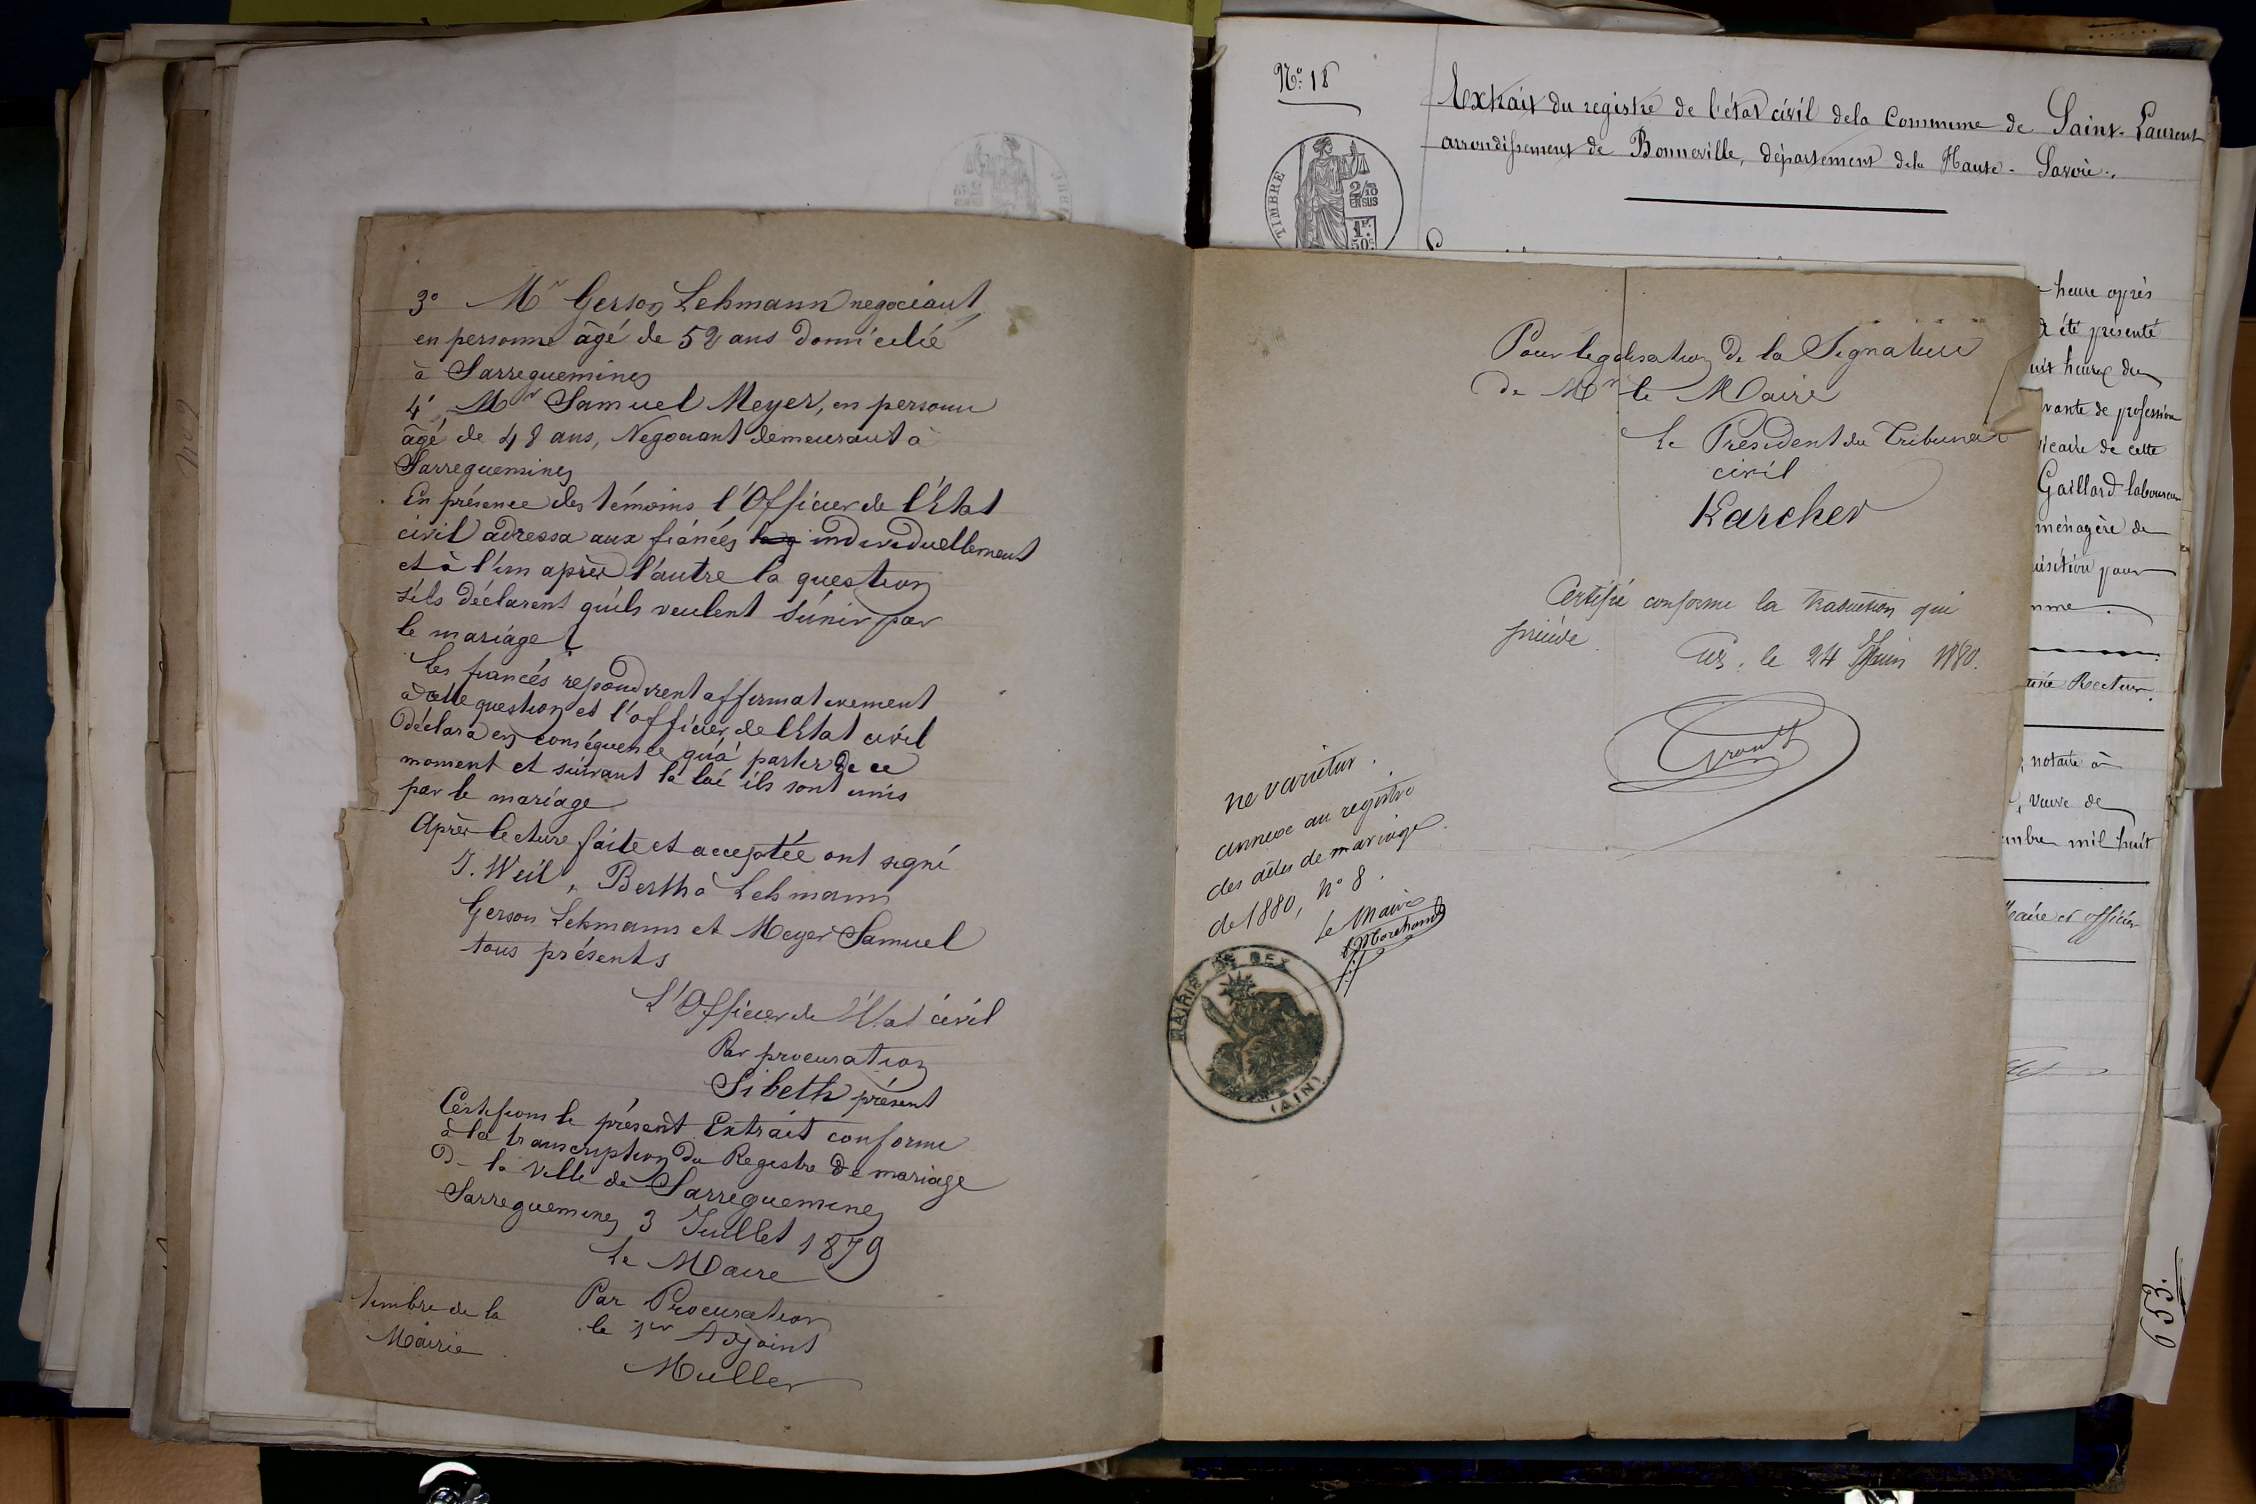 3° Mr Gerson Lehmann negociant
en personne âgé de 52 ans domicilié
à Sarreguemines
4° Mr Samuel Meyer, en personne
âgé de 48 ans, Negociant demeurant à
Sarreguemines
En présence des témoins l'Officier de l'Etat
civil adressa aux fiancés individuellement
et à l'un après l'autre la question
s'ils déclarent qu'ils veulent s'unir par
le mariage
Les fiancés repondirent affirmativement
à cette question et l'officier de l'Etat civil
déclara en conséquence qu'à partir de ce
moment et suivant la loi ils sont unis
par le mariage
Après lecture faite et acceptée ont signé
J. Weil, Bertha Lehmann
Gerson Lehmann et Meyer Samuel
tous présents
L'Officier de l'Etat civil
Par procuration
Sibeth présent
Certifions le présent Extrait conforme
à la transcription du Registre de mariage
de la ville de Sarreguemines
Sarreguemines 3 Juillet 1879
Le Maire
Par Procuration
le 1er Adjoint
Muller
timbre de la
Mairie
Pour legalisation de la Signature
de Mr le Maire
Le Président du Tribunal
civil
Karcher
Certifié conforme la traduction qui
précède.
Gex, le 24 Juin 1880.
ne varietur.
annexe au registre
des actes de mariage
de 1880, N° 8.
Le Maire
MAIRIE DE GEX
(AIN)
N°: 18
TIMBRE
2/10
EN SUS
1F.
50c
Extrait du registre de l'état civil de la Commune de Saint-Laurent
arrondissement de Bonneville, département de la Haute-Savoie.
heure après
été présenté
heures du
de profession
vicaire de cette
Gaillard laboureur
ménagère de
pour
Recteur.
notaire à
veuve de
mil huit
et officier
653.